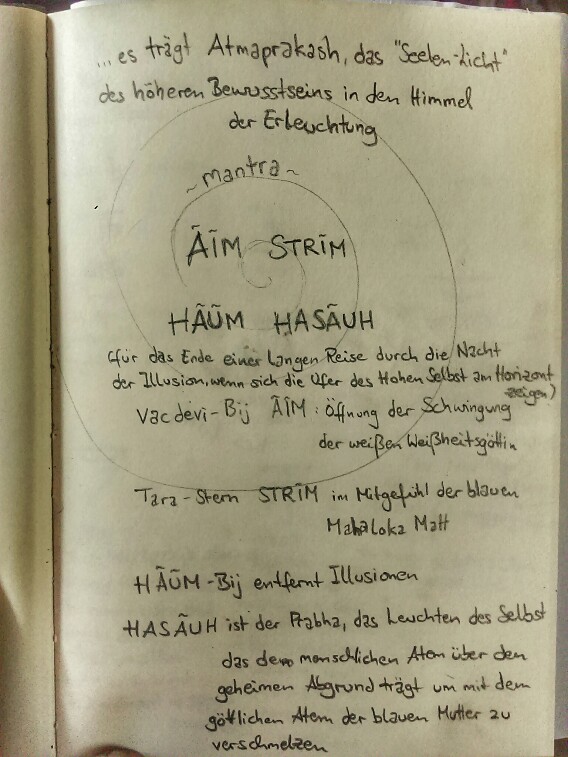 ...es trägt Atmaprakash, das "Seelen-Licht"
des höheren Bewusstseins in den Himmel
der Erleuchtung
~mantra~
ÃĪM STRĪM
HÃŨM HASÃUH
(für das Ende einer langen Reise durch die Nacht
der Illusion, wenn sich die Ufer des Hohen Selbst am Horizont
zeigen)
Vac devi-Bij ÃĪM: Öffnung der Schwingung
der weißen Weißheitsgöttin
Tara-Stern STRĪM im Mitgefühl der blauen
Mahaloka Matt
HÃŨM-Bij entfernt Illusionen
HASÃUH ist der Prabha, das Leuchten des Selbst
das den menschlichen Atem über den
geheimen Abgrund trägt um mit dem
göttlichen Atem der blauen Mutter zu
verschmelzen